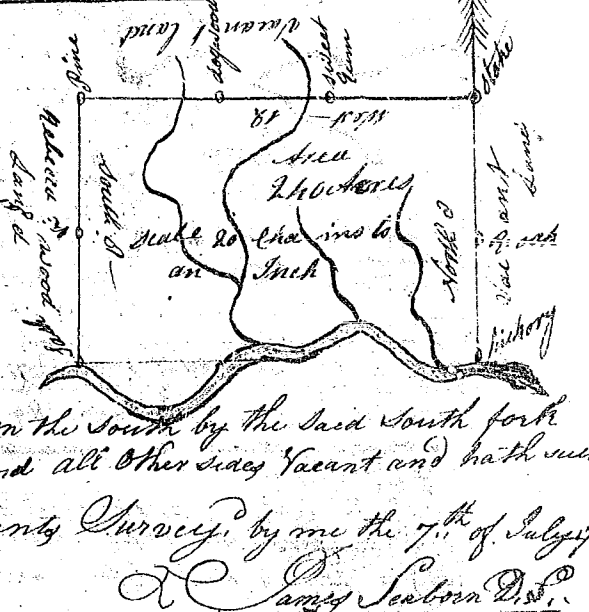 Vacant land
Pine
dogwood
sweet
Gum
Stake
West 12
Area
Acres
South 8
North 8
Scale 20 Chains to
an Inch
Wood
Land
Vacant
Land
Hickory
on the South by the Said South fork
and all Other sides Vacant and hath such
Survey'd by me the 7th of July
James Seaborn D.S.